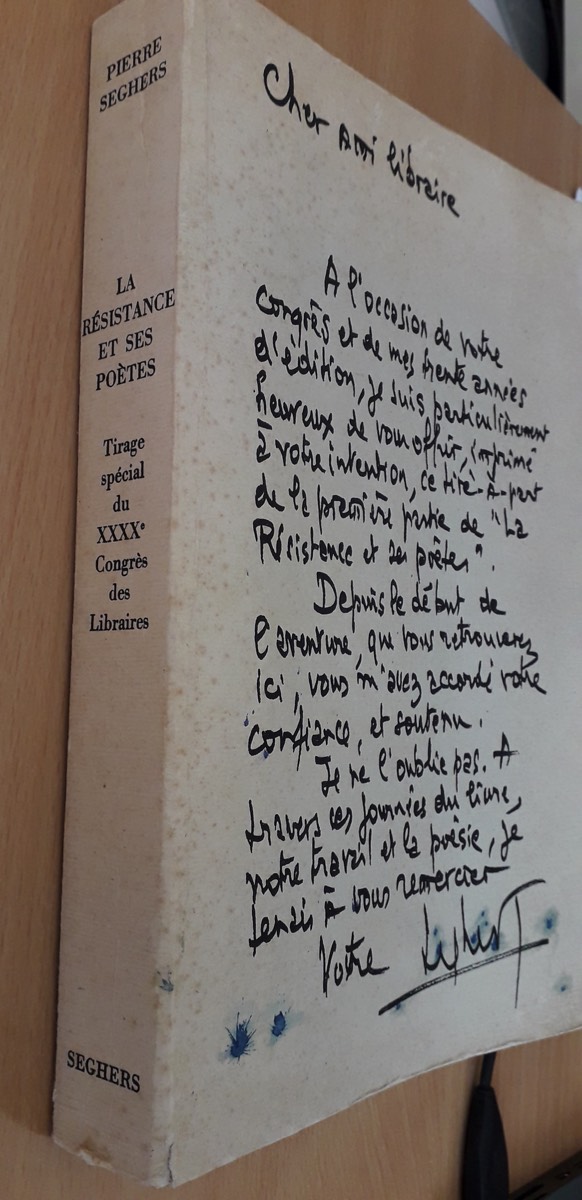 PIERRE
SEGHERS
LA
RÉSISTANCE
ET SES
POÈTES
Tirage
spécial
du
XXXXe
Congrès
des
Libraires
SEGHERS
Cher ami libraire
A l'occasion de votre
congrès et de mes trente années
d'édition, je suis particulièrement
heureux de vous offrir, imprimé
à votre intention, ce tiré-à-part
de la première partie de "La
Résistance et ses poètes".
Depuis le début de
l'aventure, que vous retrouverez
ici, vous m'avez accordé votre
confiance, et soutenu.
Je ne l'oublie pas. A
travers ces journées du livre,
notre travail et la poésie, je
tenais à vous remercier
Votre